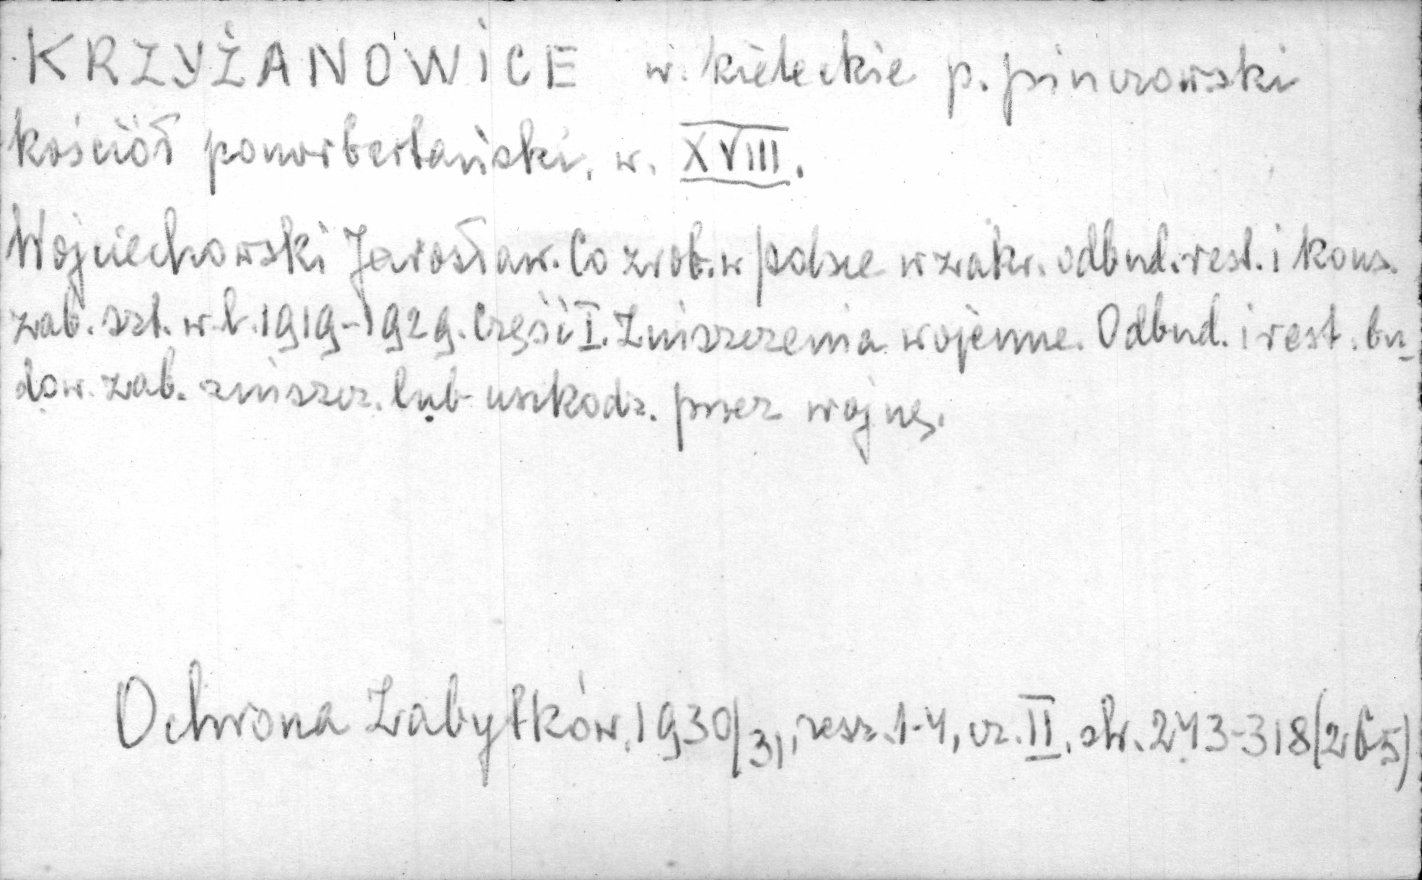 KRZYŻANOWICE w. kieleckie p. pinczowski
kościół ponorbertański, w. XVIII.
Wojciechowski Jarosław. Co zrob. w Polsce w zakr. odbud. rest. i kons.
zab. szt. w l. 1919-1929. Części I. Zniszczenia wojenne. Odbud. i rest. bu-
dow. zab. zniszcz. lub uszkodz. przez wojnę.
Ochrona Zabytków, 1930/31, zesz. 1-4, cz. II, str. 243-318 (265)